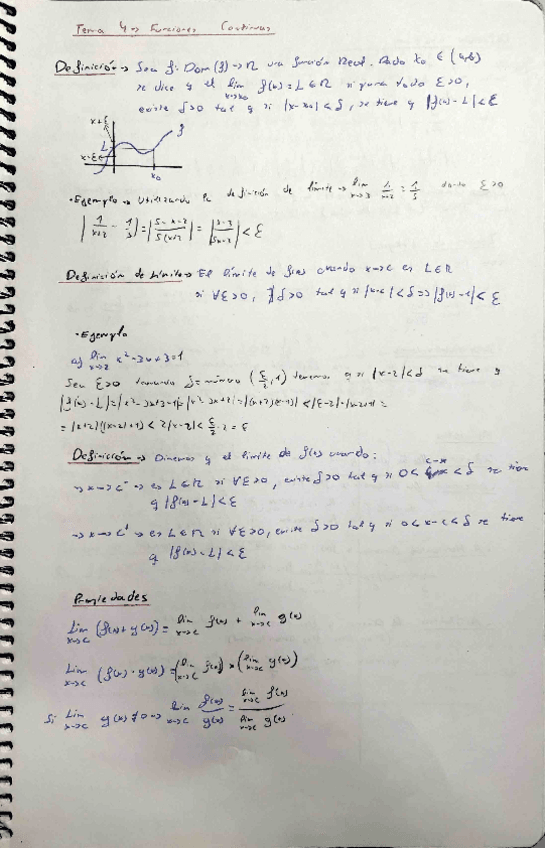 Tema 4 → Funciones Continuas
Definición → Sea f: Dom(f) → R una función Real. Dado x₀ ∈ (a,b)
se dice q el lim x→x₀ f(x) = L ∈ R si para todo ε>0,
existe δ>0 tal q si |x-x₀| < δ, se tiene q |f(x)-L| < ε
x+ε
L
x-ε
x₀
f
• Ejemplo → Utilizando la definición de límite → lim x→3 1/x+2 = 1/5 dando ε>0
|1/x+2 - 1/5| = |5-x-2/5(x+2)| = < ε
Definición de límite → El límite de f(x) cuando x→c es L∈R
si ∀ε>0, ∃δ>0 tal q si |x-c| < δ => |f(x)-L| < ε
• Ejemplo
a) lim x→2 x²-3x+3=1
Sea ε>0 tomando δ = mínimo (ε/2, 1) tenemos q si |x-2| < δ se tiene q
|f(x)-L| = |x²-3x+3-1| = |x²-3x+2| =
< 2|x-2| < ε/2 · 2 = ε
Definición → Diremos q el límite de f(x) cuando:
→ x→c⁻ → es L∈R si ∀ε>0, existe δ>0 tal q si 0< c-x < δ se tiene
q |f(x)-L| < ε
→ x→c⁺ → es L∈R si ∀ε>0, existe δ>0 tal q si 0<x-c<δ se tiene
q |f(x)-L| < ε
Propiedades
Lim x→c (f(x)+g(x)) = lim x→c f(x) + lim x→c g(x)
Lim x→c (f(x)·g(x)) = (lim x→c f(x)) × (lim x→c g(x))
Si Lim x→c g(x) ≠ 0 => lim x→c f(x)/g(x) = lim x→c f(x) / lim x→c g(x)